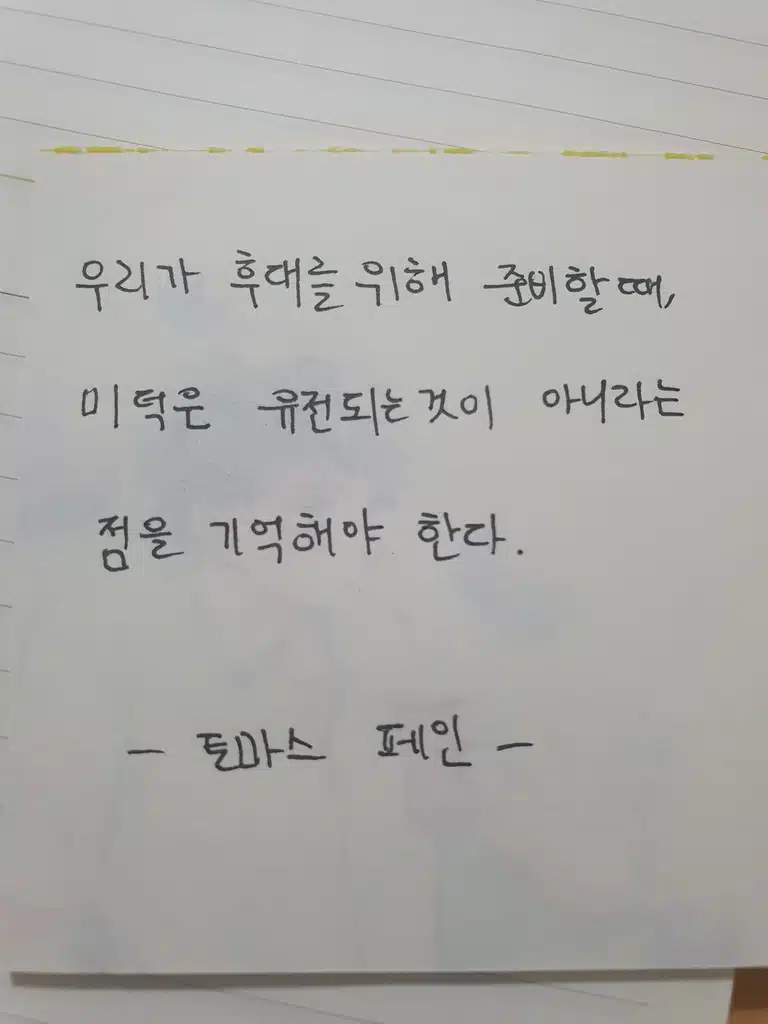 우리가 후대를 위해 준비할 때,
미덕은 유전되는 것이 아니라는
점을 기억해야 한다.
- 토마스 페인 -